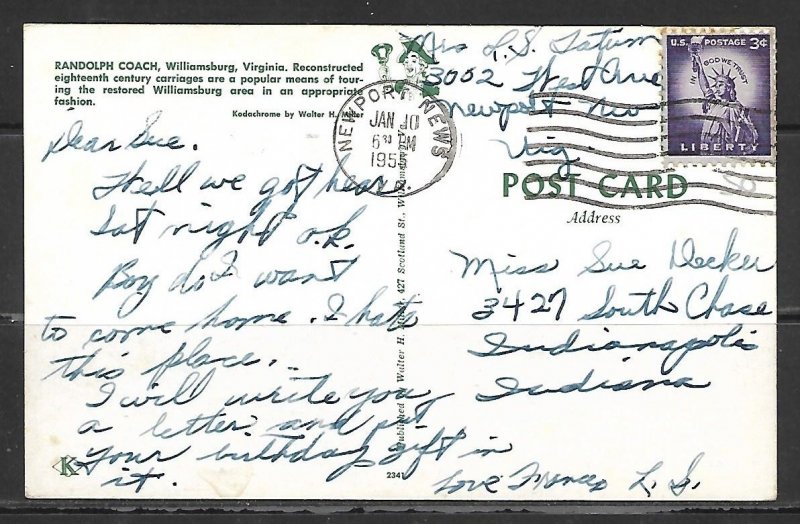 RANDOLPH COACH, Williamsburg, Virginia. Reconstructed
eighteenth century carriages are a popular means of tour-
ing the restored Williamsburg area in an appropriate
fashion.
Kodachrome by Walter H. Miller
Mrs L.S. Tatum
3002 West Ave
Newport New
Vig.
U.S. POSTAGE 3¢
IN GOD WE TRUST
LIBERTY
NEWPORT NEWS
JAN 10
6 30 PM
195
POST CARD
Address
Dear Sue.
Well we got here
Sat night o.k.
Boy do I want
to come home. I hate
this place.
I will write you
a letter and put
your birthday gift in
it.
Love Frances L.S.
Miss Sue Decker
3427 South Chase
Indianapolis
Indiana
Published by Walter H. Miller, 427 Scotland St., Williamsburg, Va.
K
2341